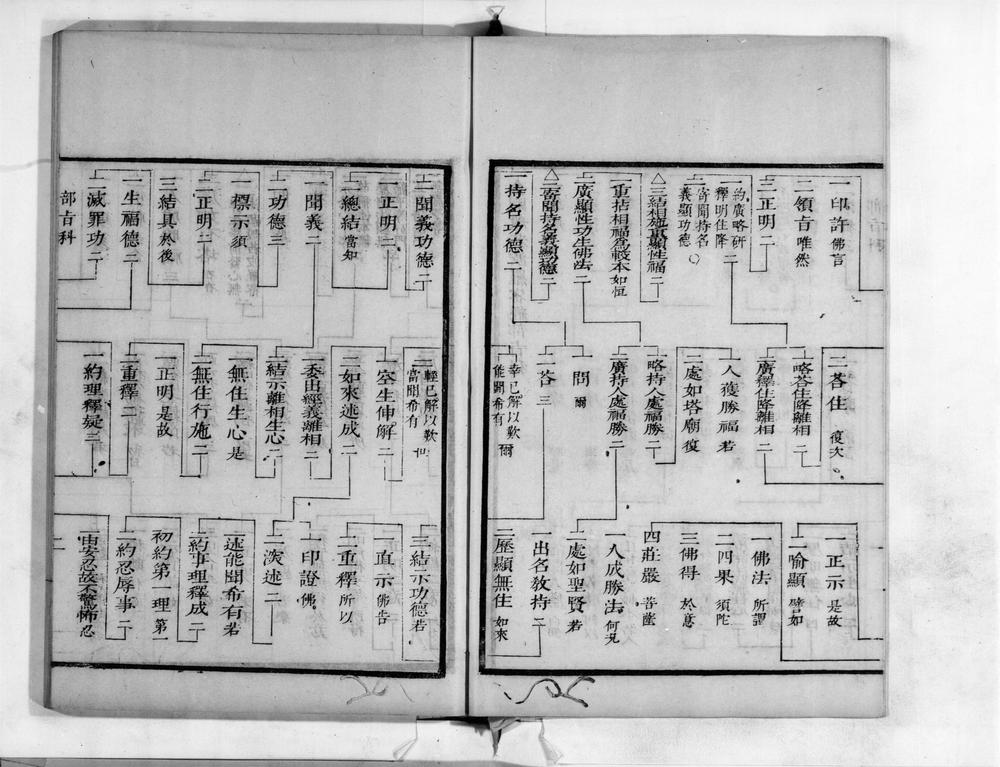 一印許佛言
二領旨唯然
三正明二
一約廣略研釋明住降二
二寄聞持名義顯功德
△三結相施重顯性福二
一重拈相福爲較本如恒
二廣顯性功生佛法二
△二寄聞持名義顯功德二
一持名功德二
二答住復次
一略答住降離相二
二廣釋住降離相二
一人獲勝福若
二處如塔廟復
一略持人處福勝二
二廣持人處福勝二
一問爾
二答三
一幸已解以歎能聞希有爾
一正示是故
二喻顯譬如
一佛法所謂
二四果須陀
三佛得於意
四莊嚴菩薩
一人成勝法何況
二處如聖賢若
一出名教持二
二歷顯無住如來
三結示功德若
二聞義功德二
一正明二
二總結當知
一聞義二
二功德三
一標示須
二正明二
三結具於後
一生福德二
二滅罪功二
部旨科
二輕已解以歎當聞希有世
一空生伸解二
二如來述成二
一委由經義離相二
二結示離相生心二
一無住生心是
二無住行施二
一正明是故
二重釋二
一約理釋疑二
直示佛告
二重釋所以
一印證佛
二次述二
一述能聞希有若
二約事理釋成二
初約第一理第一
二約忍辱事二
一由安忍故不驚怖忍
二